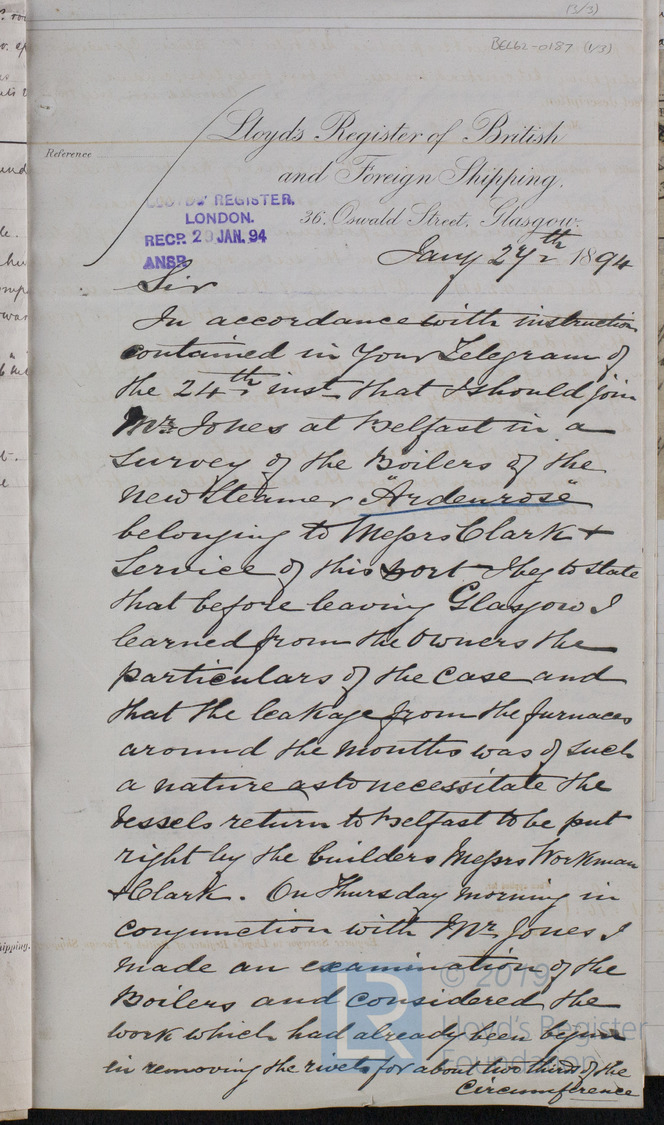 (3/3)
BEL62-0187 (1/3)
Lloyd's Register of British
and Foreign Shipping.
Reference
36, Oswald Street, Glasgow.
LLOYDS' REGISTER.
LONDON.
RECP. 29 JAN. 94
ANSR.
Jany 27th 1894
Sir
In accordance with instruction
contained in your Telegram of
the 24th inst that I should join
Mr Jones at Belfast in a
survey of the Boilers of the
new Steamer "Ardenrose"
belonging to Messrs Clark &
Service of this port I beg to state
that before leaving Glasgow I
learned from the Owners the
particulars of the case and
that the leakage from the furnaces
around the mouths was of such
a nature as to necessitate the
vessels return to Belfast to be put
right by the builders Messrs Workman
& Clark. On Thursday morning in
conjunction with Mr Jones I
made an examination of the
Boilers and considered the
work which had already been begun
in removing the rivets for about two thirds of the
circumference
© 2019
Lloyd's Register
Foundation
LR